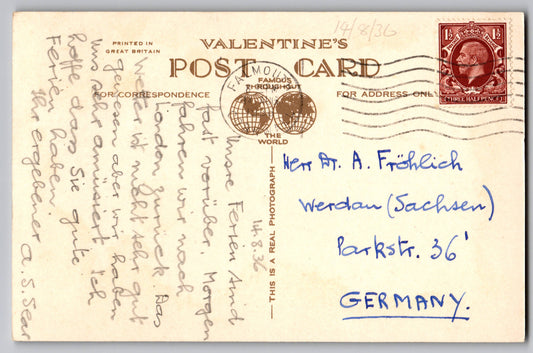 14/8/36
PRINTED IN
GREAT BRITAIN
VALENTINE'S
POST CARD
FAMOUS
THROUGHOUT
THE
WORLD
FOR CORRESPONDENCE
FOR ADDRESS ONLY
FALMOUTH
1½ 1½
THREE HALFPENCE
THIS IS A REAL PHOTOGRAPH
14.8.36
Unsre Ferien sind
fast vorüber. Morgen
fahren wir nach
London zurück. Das
Wetter ist nicht sehr gut
gewesen aber wir haben
uns sehr amüsiert. Ich
hoffe dass Sie gute
Ferien haben.
Ihr ergebener
A. S. Sear
Herr Dr. A. Fröhlich
Werdau (Sachsen)
Parkstr. 36'
GERMANY.